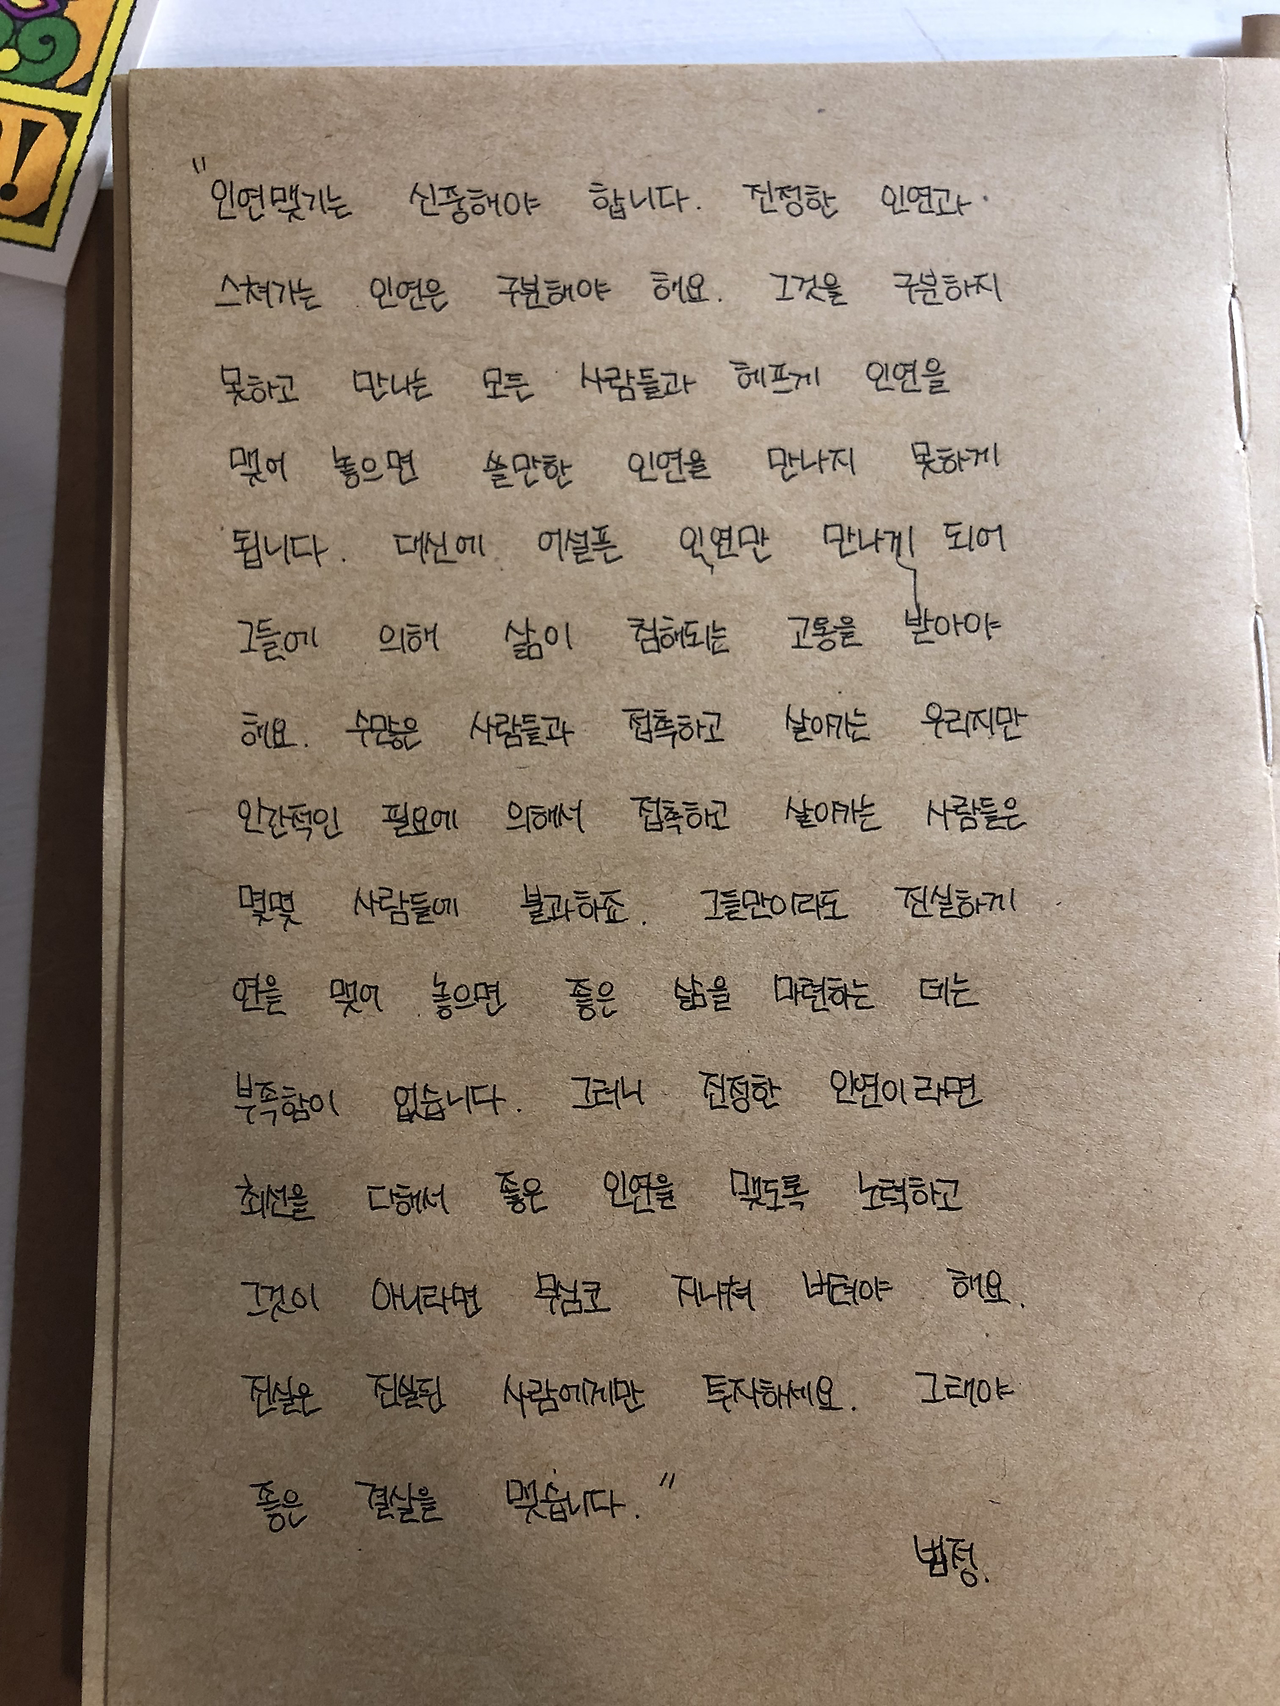 !
"인연맺기는 신중해야 합니다. 진정한 인연과
스쳐가는 인연은 구분해야 해요. 그것을 구분하지
못하고 만나는 모든 사람들과 헤프게 인연을
맺어 놓으면 쓸만한 인연을 만나지 못하게
됩니다. 대신에 어설픈 인연만 만나게 되어
그들에 의해 삶이 침해되는 고통을 받아야
해요. 수많은 사람들과 접촉하고 살아가는 우리지만
인간적인 필요에 의해서 접촉하고 살아가는 사람들은
몇몇 사람들에 불과하죠. 그들만이라도 진실하게
연을 맺어 놓으면 좋은 삶을 마련하는 데는
부족함이 없습니다. 그러니 진정한 인연이라면
최선을 다해서 좋은 인연을 맺도록 노력하고
그것이 아니라면 무심코 지나쳐 버려야 해요.
진실은 진실된 사람에게만 투자하세요. 그래야
좋은 결실을 맺습니다."
법정.